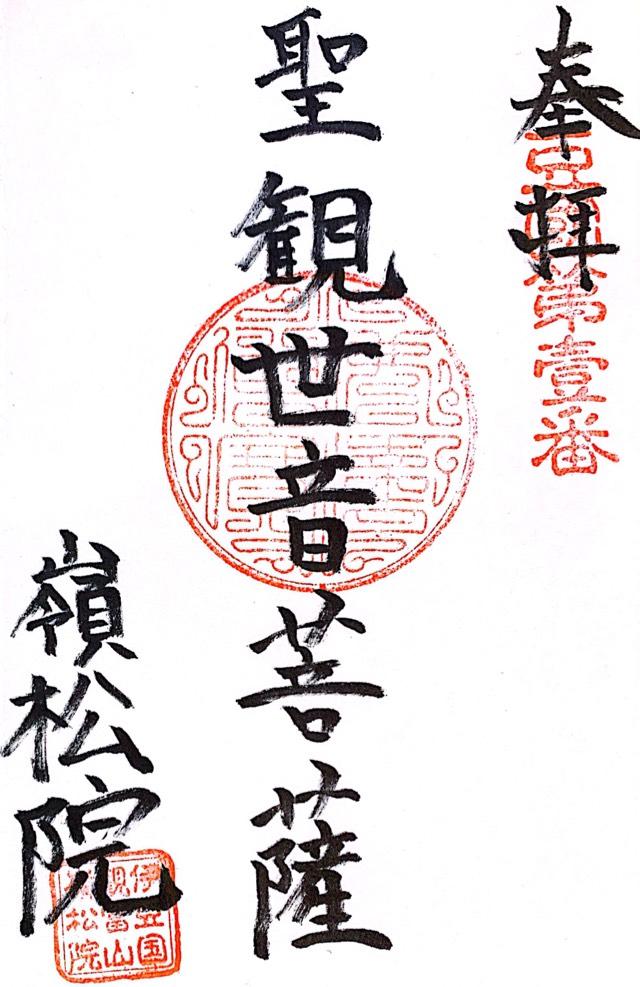 奉拝
豆國第壹番
聖観世音菩薩
嶺松院
伊豆国
山
松院